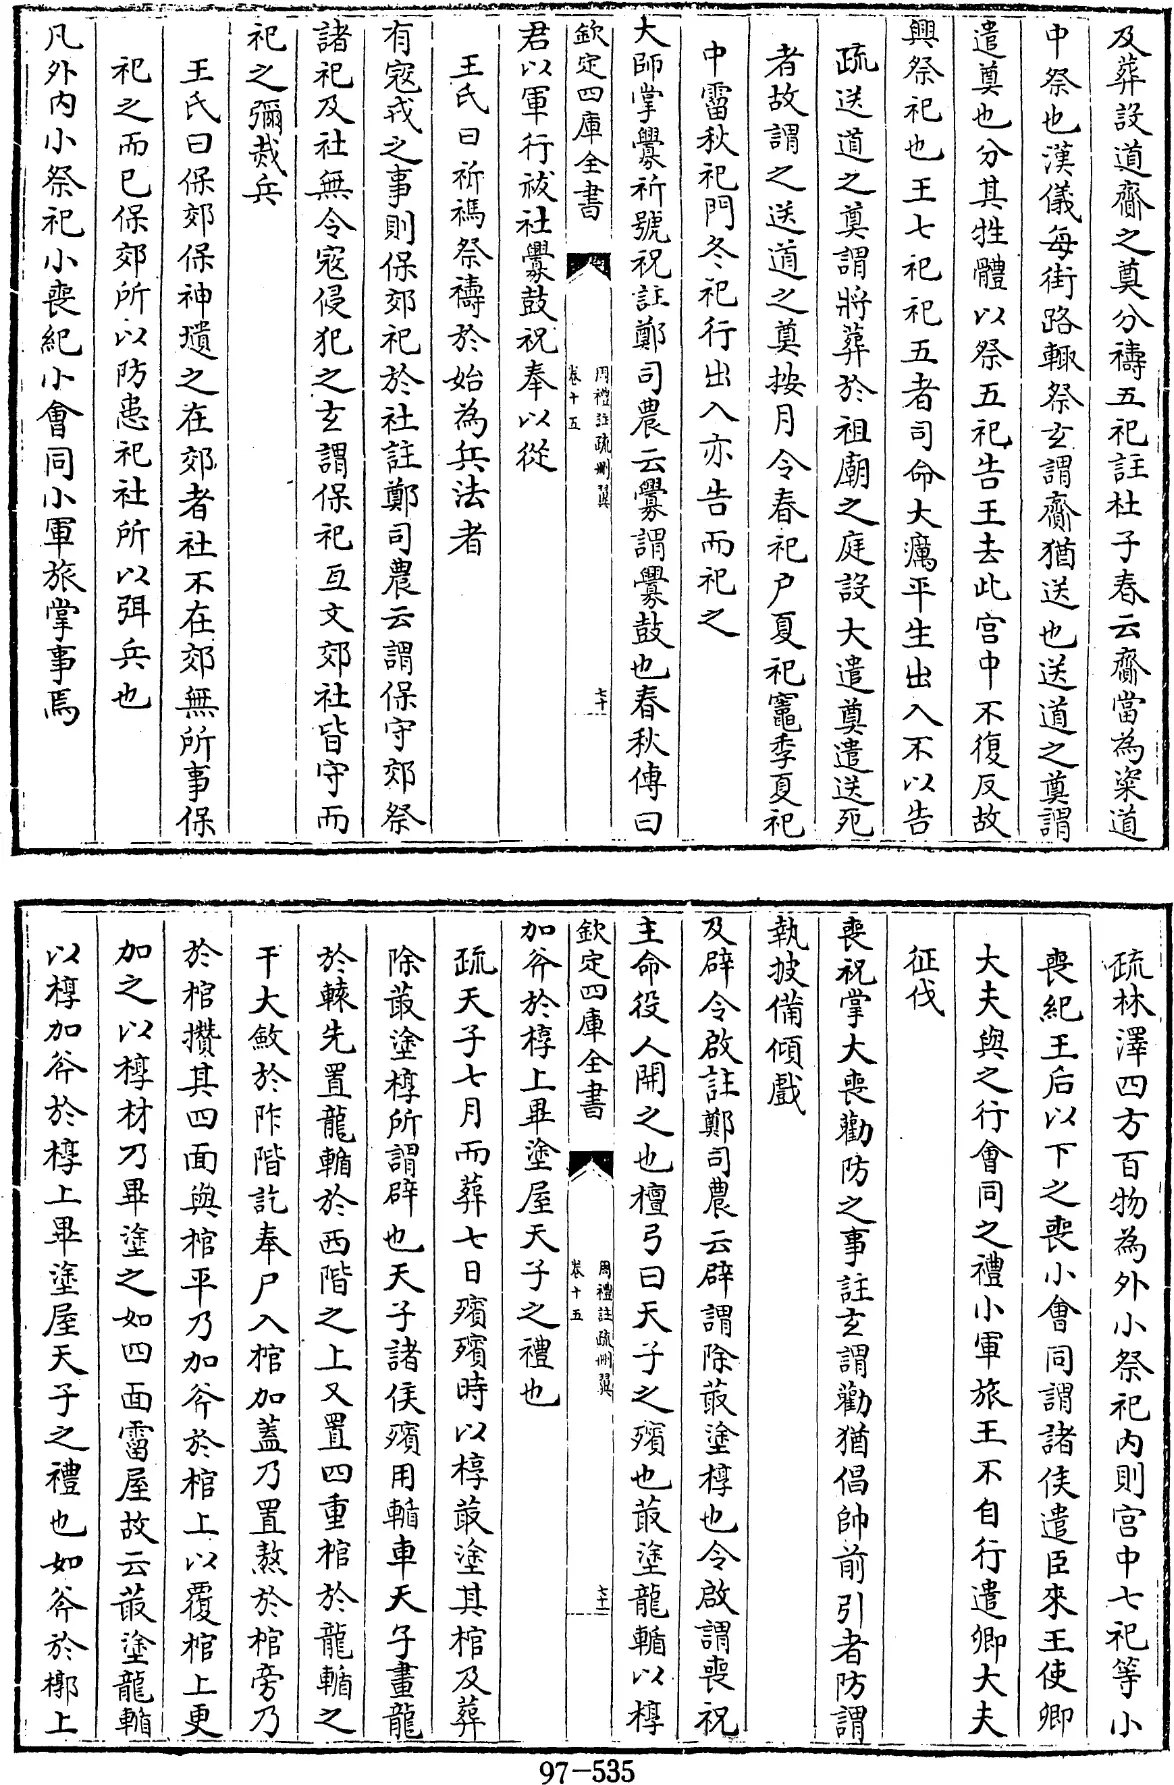 及葬設道齎之奠分禱五祀註杜子春云齎當為粢道
中祭也漢儀每街路輙祭玄謂齎猶送也送道之奠謂
遣奠也分其牲體以祭五祀告王去此宫中不復反故
興祭祀也王七祀祀五者司命大癘平生出入不以告
疏送道之奠謂將葬於祖廟之庭設大遣奠遣送死
者故謂之送道之奠按月令春祀户夏祀竈季夏祀
中霤秋祀門冬祀行出入亦告而祀之
大師掌釁祈號祝註鄭司農云釁謂釁鼓也春秋傳曰
欽定四庫全書
周禮註疏刪翼
卷十五
七十
君以軍行祓社釁鼓祝奉以從
王氏曰祈禡祭禱於始為兵法者
有寇戎之事則保郊祀於社註鄭司農云謂保守郊祭
諸祀及社無令寇侵犯之玄謂保祀互文郊社皆守而
祀之彌烖兵
王氏曰保郊保神壝之在郊者社不在郊無所事保
祀之而已保郊所以防患祀社所以弭兵也
凡外内小祭祀小喪紀小會同小軍旅掌事焉
疏林澤四方百物為外小祭祀内則宫中七祀等小
喪紀王后以下之喪小會同謂諸侯遣臣來王使卿
大夫與之行會同之禮小軍旅王不自行遣卿大夫
征伐
喪祝掌大喪勸防之事註玄謂勸猶倡帥前引者防謂
執披備傾戲
及辟令啟註鄭司農云辟謂除菆塗椁也令啟謂喪祝
主命役人開之也檀弓曰天子之殯也菆塗龍輴以椁
欽定四庫全書
周禮註疏刪翼
卷十五
七十一
加斧於椁上畢塗屋天子之禮也
疏天子七月而葬七日殯殯時以椁菆塗其棺及葬
除菆塗椁所謂辟也天子諸侯殯用輴車天子畫龍
於轅先置龍輴於西階之上又置四重棺於龍輴之
干大斂於阼階訖奉尸入棺加蓋乃置熬於棺旁乃
於棺攢其四面與棺平乃加斧於棺上以覆棺上更
加之以椁材乃畢塗之如四面霤屋故云菆塗龍輴
以椁加斧於椁上畢塗屋天子之禮也如斧於槨上
97-535